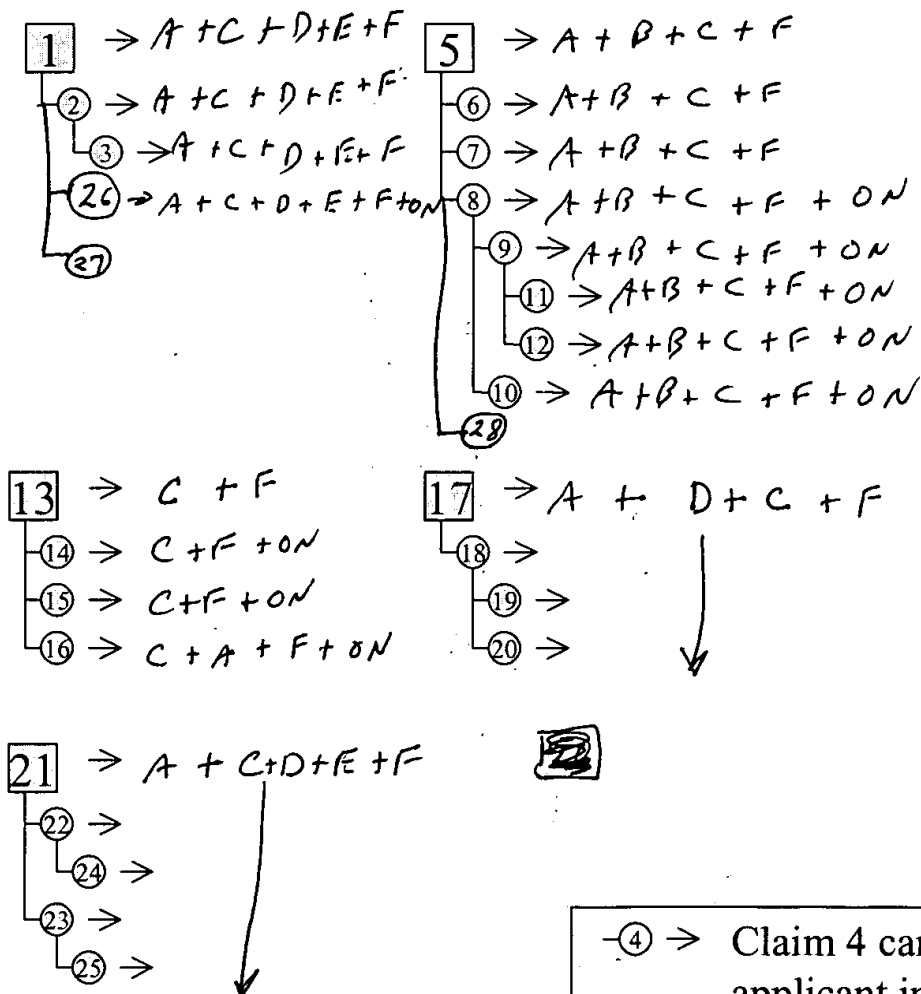 1 → A + C + D + E + F
2 → A + C + D + E + F
3 → A + C + D + E + F
26 → A + C + D + E + F + ON
27
5 → A + B + C + F
6 → A + B + C + F
7 → A + B + C + F
8 → A + B + C + F + ON
9 → A + B + C + F + ON
11 → A + B + C + F + ON
12 → A + B + C + F + ON
10 → A + B + C + F + ON
28
13 → C + F
14 → C + F + ON
15 → C + F + ON
16 → C + A + F + ON
17 → A + D + C + F
18 →
19 →
20 →
21 → A + C + D + E + F
22 →
24 →
23 →
25 →
4 → Claim 4 can
applicant in